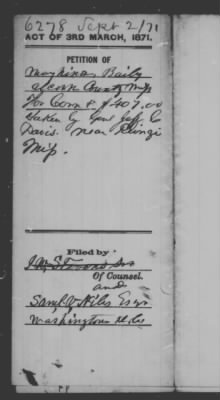 6278 Sept 2/71
ACT OF 3RD MARCH, 1871.
PETITION OF
Baily
Alcorn County Miss
For Corn &c $407.00
taken by Genl Jeff C
Davis. near Rienzi
Miss.
Filed by
Of Counsel.
and
Saml V Niles Esqr
Washington